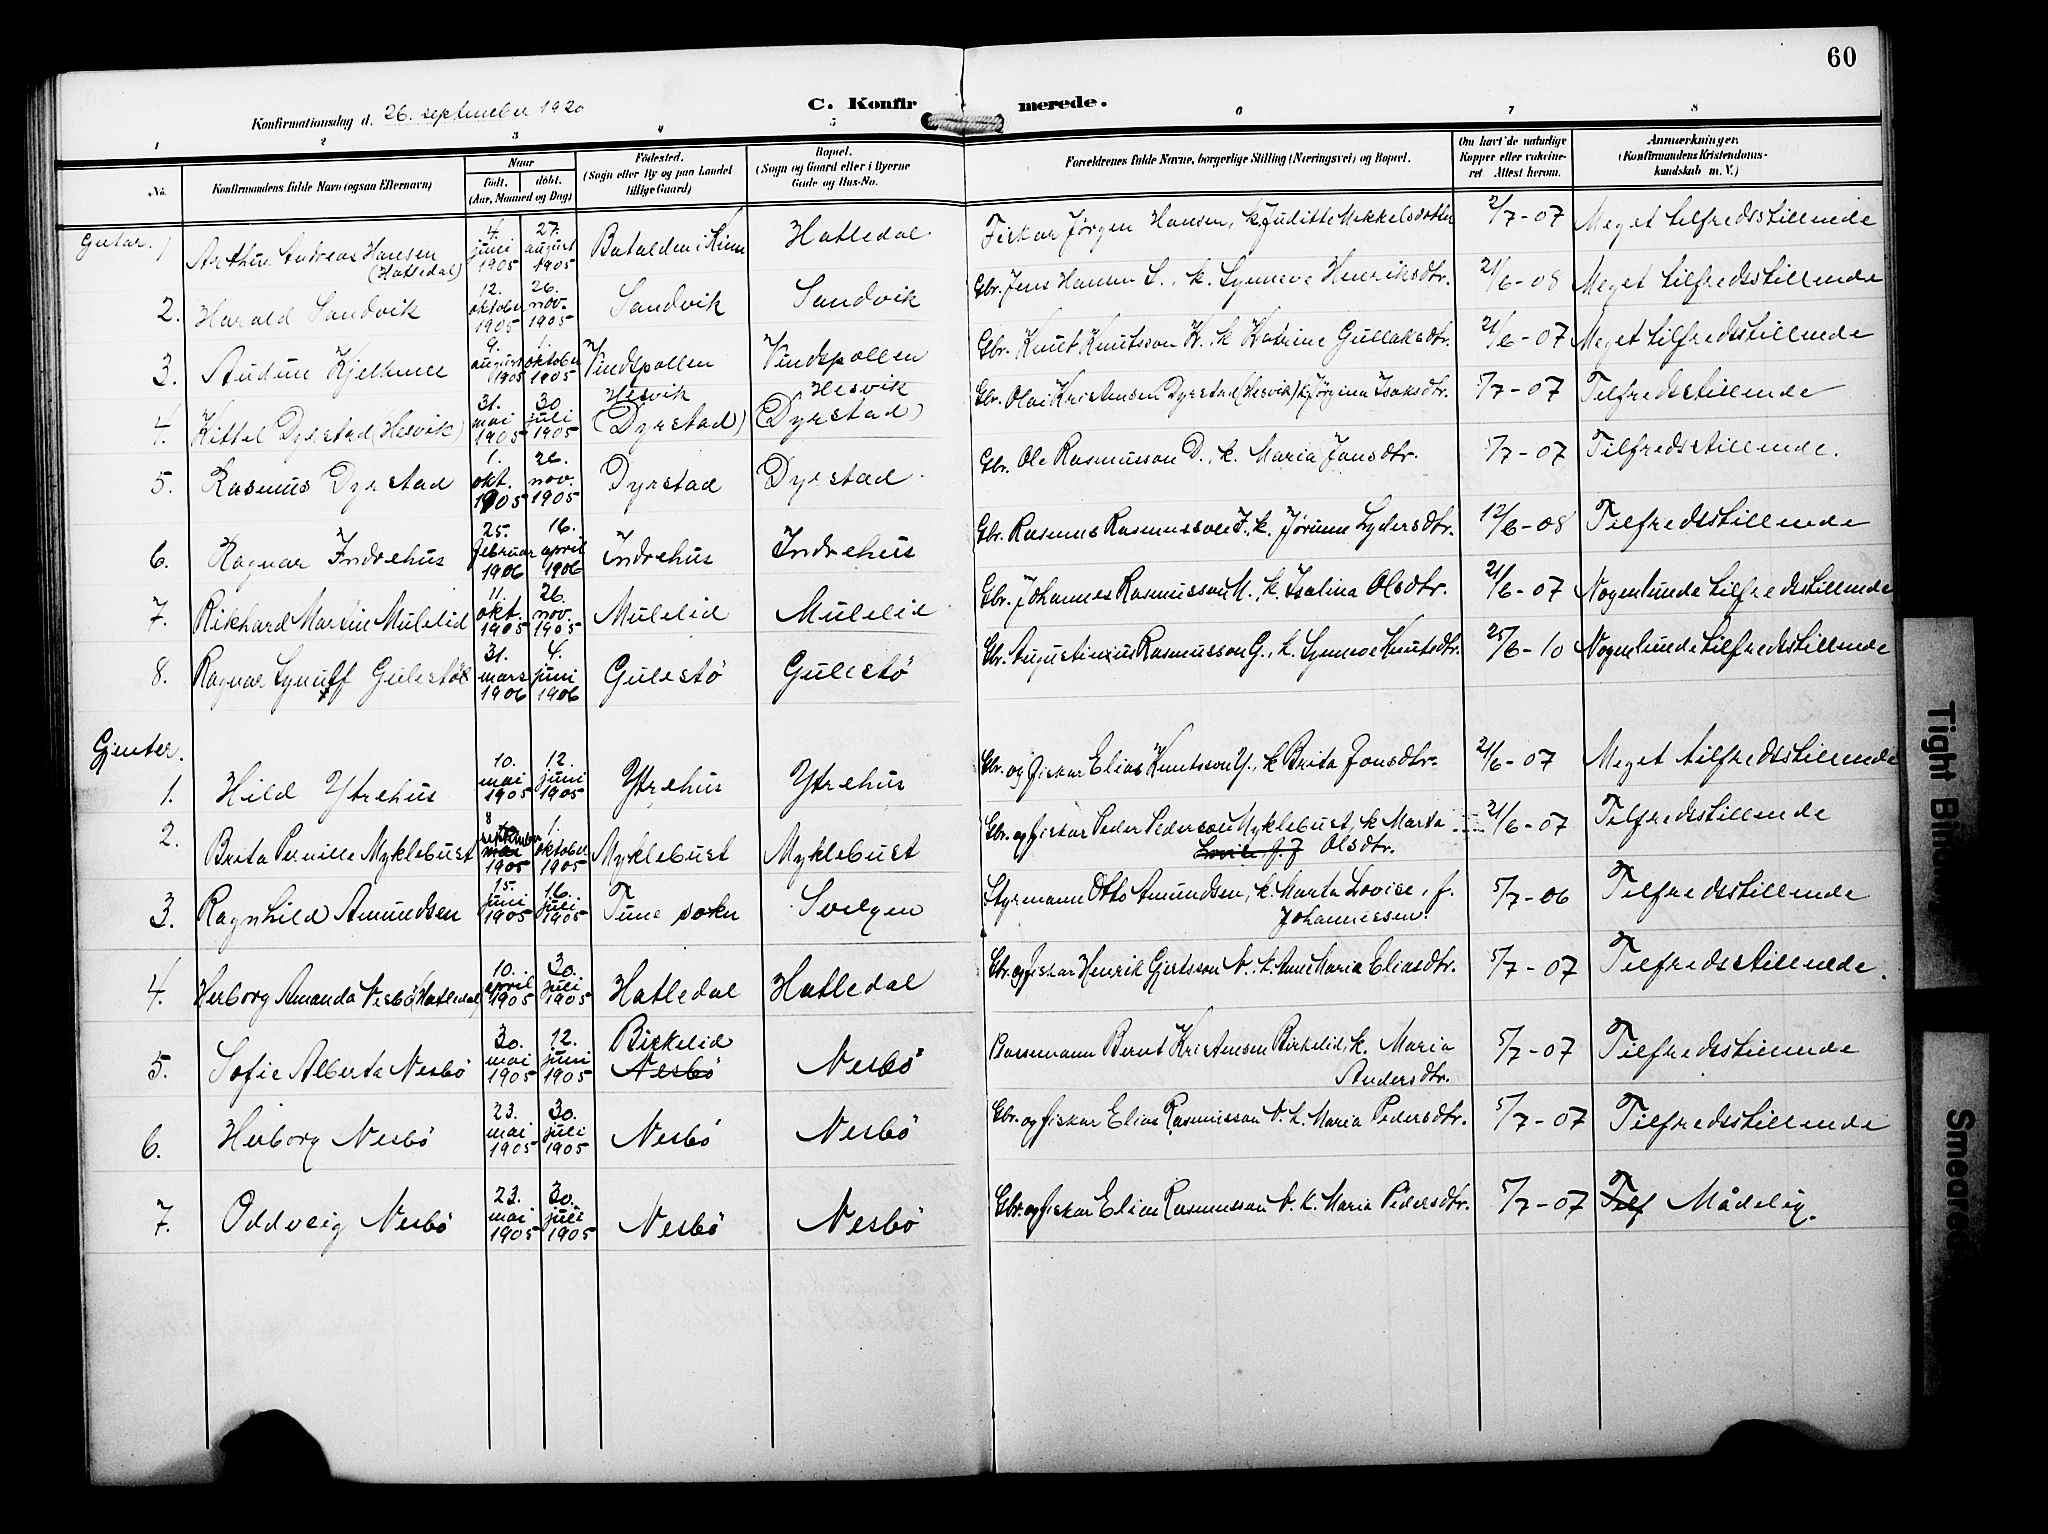 60
C. Konfirmerede.
Konfirmationsdag d. 26. september 1920
1 2 3 4 5 6 7 8
No. Konfirmandens fulde Navn (ogsaa Efternavn) Naar født. døbt. (Aar, Maaned og Dag) Fødested. (Sogn eller By og paa Landet tillige Gaard) Bopæl. (Sogn og Gaard eller i Byerne Gade og Hus-No. Forældrenes fulde Navne, borgerlige Stilling (Næringsvei) og Bopæl. Om havt de naturlige Kopper eller vaccineret Attest herom. Anmærkninger. (Konfirmandens Kristendomskundskab m. V.)
Gutar. 1 Arthur Andreas Hansen (Hatledal) 4. juni 1905 27. august 1905 Batalden i Kinn Hatledal Fiskar Jørgen Hansen, k. Juditte Mekkelsdotter 2/7-07 Meget tilfredsstillende
2. Harald Sandvik 12. oktober 1905 26. nov. 1905 Sandvik Sandvik Gbr. Jens Hansen S., k. Synneve Henriksdtr. 21/6-08 Meget tilfredsstillende
3. Audun Kjelkenes 9. august 1905 1. oktober 1905 Vindspollen Vindspollen Gbr. Knut Knutsson K., k. Katrine Gullaksdtr. 21/6-07 Meget tilfredsstillende
4. Kittel Dyrstad (Hesvik) 31. mai 1905 30. juli 1905 Hesvik (Dyrstad) Hesvik (Dyrstad) Gbr. Olai Kristensen Dyrstad (Hesvik) k. Jørgina Isaksdtr. 5/7-07 Tilfredsstillende
5. Rasmus Dyrstad 1. okt. 1905 26. nov. 1905 Dyrstad Dyrstad Gbr. Ole Rasmusson D., k. Maria Jonsdtr. 5/7-07 Tilfredsstillende.
6. Ragnar Indrehus 25. februar 1906 16. april 1906 Indrehus Indrehus Gbr. Rasmus Rasmusson I., k. Jørinn Lydersdtr. 12/6-08 Tilfredsstillende
7. Rikhard Martin Mulelid 11. okt. 1905 26. nov. 1905 Mulelid Mulelid Gbr. Johannes Rasmusson M., k. Isalina Olsdtr. 21/6-07 Nogenlunde tilfredsstillende
8. Ragnar Synulf Gulestø 31. mars 1906 4. juni 1906 Gulestø Gulestø Gbr. Augustinius Rasmusson G., k. Synneve Knutsdtr. 25/6-10 Nogenlunde tilfredsstillende
Gjenter.
1. Hild Ytrehus 10. mai 1905 12. juni 1905 Ytrehus Ytrehus Gbr. og fiskar Elias Knutsson Y., k. Brita Jonsdtr. 21/6-07 Meget tilfredsstillende
2. Brita Pernille Myklebust 8 september mai 1905 1. oktober 1905 Myklebust Myklebust Gbr. og fiskar Peder Pederson Myklebust, k. Marta Lovise f. J Olsdtr. 21/6-07 Tilfredsstillende
3. Ragnhild Amundsen 15. juni 1905 16. juli 1905 Tune sokn Svelgen Styrmann Otto Amundsen, k. Marta Lovise, f. Johannessen. 5/7-06 Tilfredsstillende
4. Herborg Amanda Nesbø (Hatledal) 10. april 1905 30. juli 1905 Hatledal Hatledal Gbr. og fiskar Henrik Gjertsson N., k. Anne Maria Eliasdtr. 5/7-07 Tilfredsstillende.
5. Sofie Alberta Nesbø 30. mai 1905 12. juni 1905 Birkelid Nesbø Nesbø Bernt Kristensen Birkelid, k. Maria Andersdtr. 5/7-07 Tilfredsstillende
6. Herborg Nesbø 23. mai 1905 30. juli 1905 Nesbø Nesbø Gbr. og fiskar Elias Rasmusson N. k. Maria Pedersdtr. 5/7-07 Tilfredsstillende
7. Oddveig Nesbø 23. mai 1905 30. juli 1905 Nesbø Nesbø Gbr. og fiskar Elias Rasmusson N. k. Maria Pedersdtr. 5/7-07 Tilf Mådelig.
Smeared